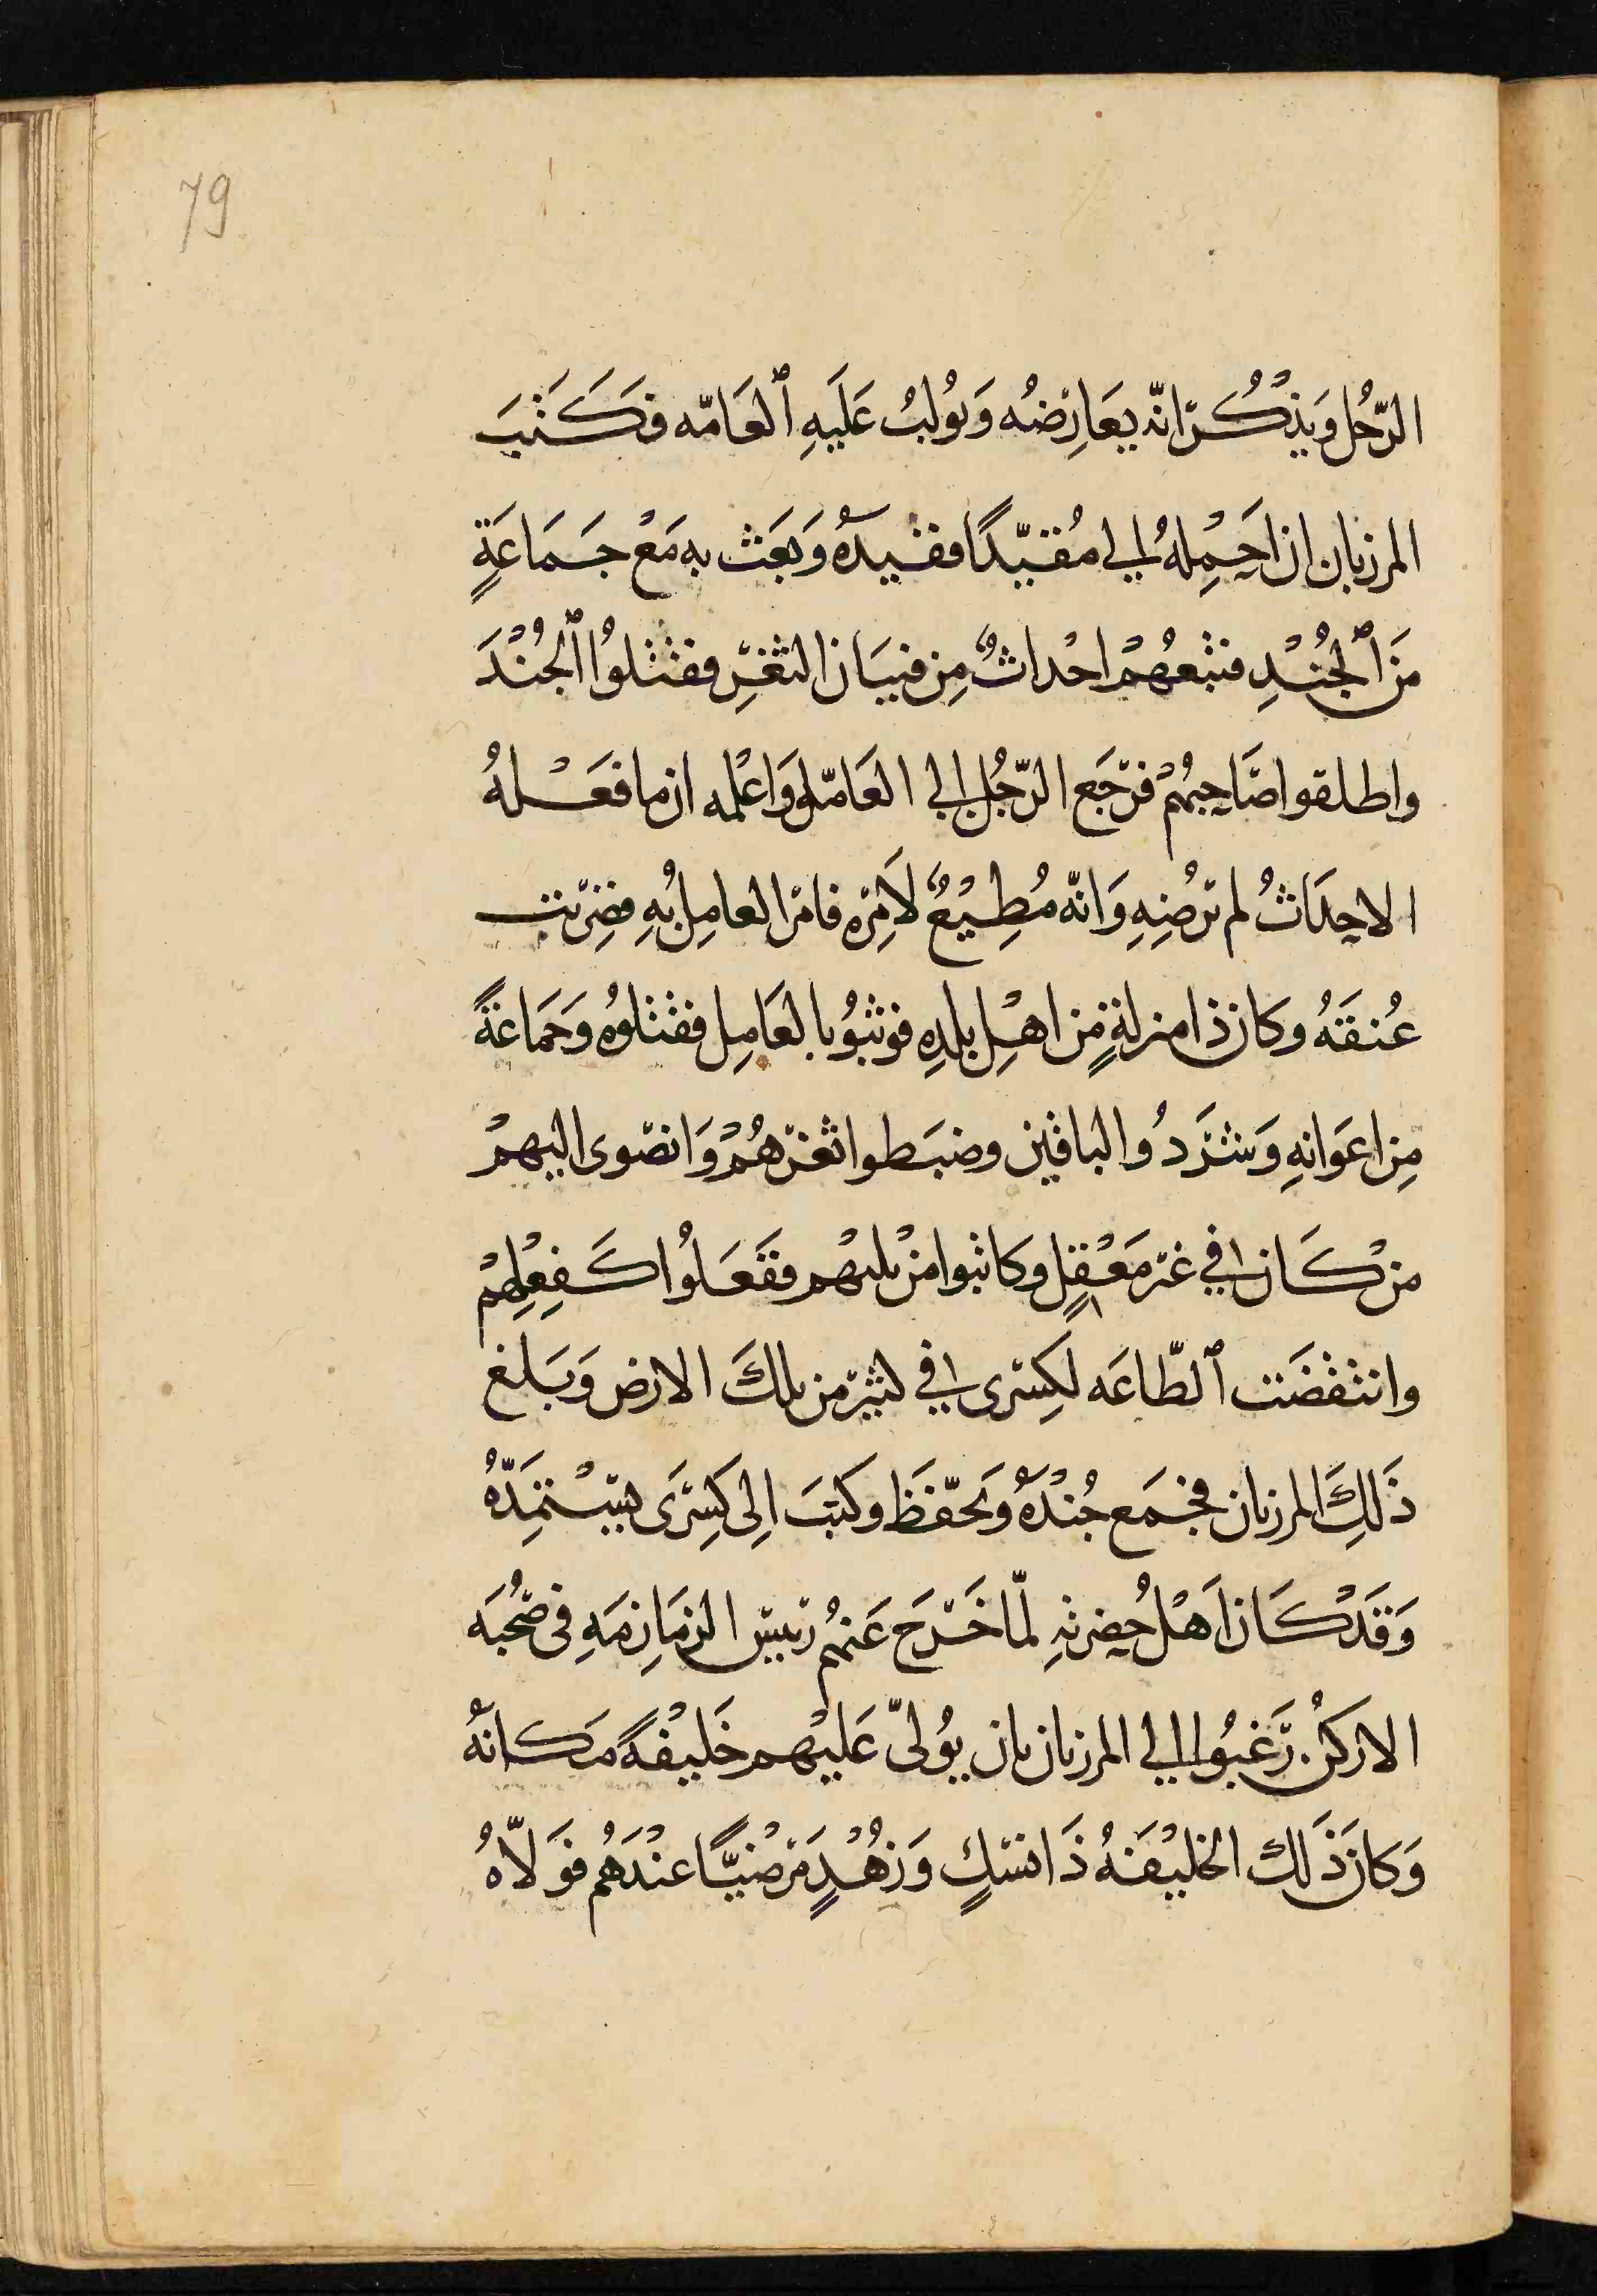 79
الرّجُل وَيذْكُر انّه يعَارِضُه وَيُولبُ عَلَيهِ ٱلعَامّه فكَتَبَ
المرزبان ان اَحمِلهُ الي مُقيّدًا فقيدهُ وَبَعَث به مَعْ جَمَاعَةٍ
مَن ٱلجُنْدِ فتبعهُمْ احْداثٌ مِن فتيَان الثغرِ فقتلوُا ٱلجُنْدَ
واطلقوا صَاحِبهُمْ فرجَع الرّجُل الي العَامل وَاعْلمه ان ما فعَلهُ
الاحدَاثُ لم ترضِهِ وَانّه مُطِيْعٌ لاَمرِه فامر العامِل بُهِ فضرِبَت
عُنقَهُ وكان ذا منزلةٍ من اهْلِ بلدِه فوثبُوا بالعَامِل فقتلوُه وَجمَاعَةً
مِن اعَوَانهِ وَشرَدُوا الباقين وضبَطوا ثغرهُمْ وَانضوى اليهمْ
منْ كَان في غير مَعْقِلٍ وكاتبوا منْ يليهْم ففَعَلوُا كَفِعْلِهمْ
وانتقضَت ٱلطّاعَه لكِسرى في كثير من تلكَ الارض وَبَلغ
ذَلِكَ المرزبان فجَمَع جُنْدهُ وَتحّفظَ وكتبَ اِلى كِسرَى يسْتَمِدّهُ
وَقَدْ كَان اَهْلُ حضرتهِ لمّا خَرَج عَنهُم رئيس الزمَازِمَهِ فى صُحُبَه
الاركنُ. رَغبُوا الي المرزبان بان يُولىّ عَليْهم خَليْفةً مكانهُ
وَكانَ ذَلك الخليْفَهُ ذَا نسكٍ وَزُهْدٍ مَرْضيًّا عنْدَهُم فوَلاّهُ